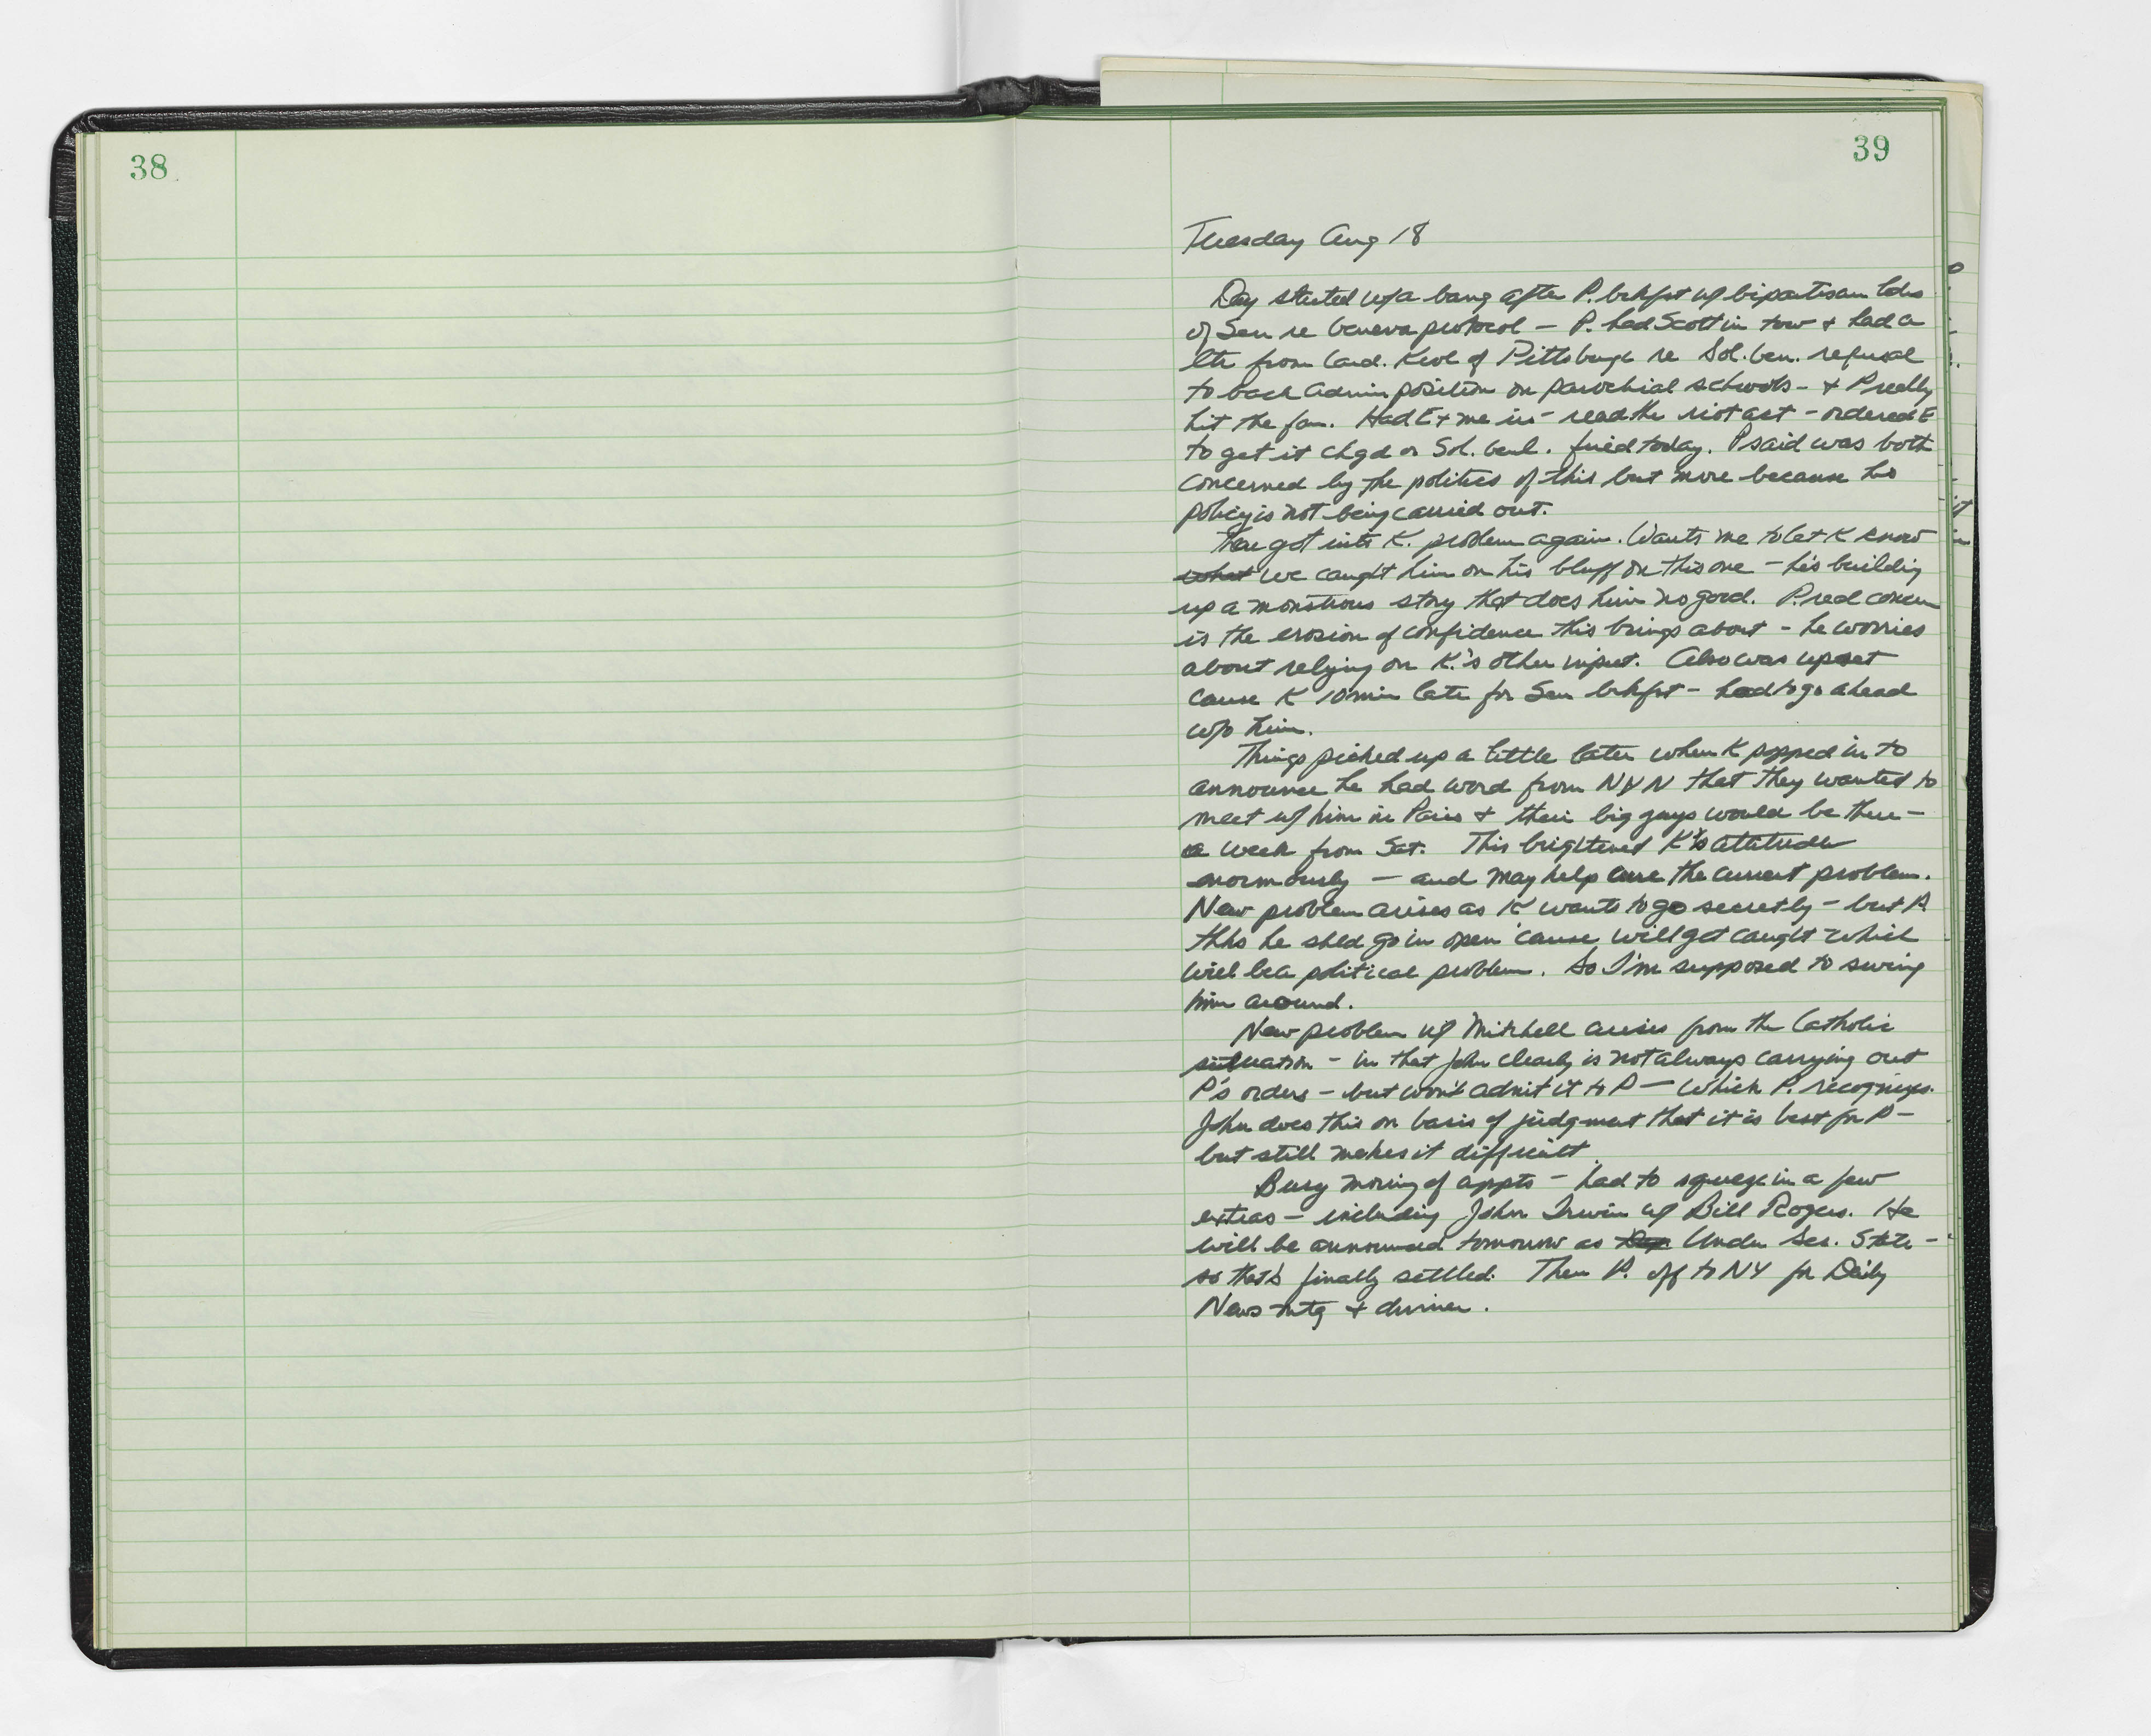 38
39
Tuesday Aug 18
Day started w/a bang after P. brkfst w/ bipartisan ldrs
of Sen re Geneva protocol — P. had Scott in tow + had a
ltr from Card. of Pittsburgh re Sol. Gen. refusal
to back admin position on parochial schools - + P really
hit the fan. Had E + me in - read the riot act - ordered E
to get it chgd or Sol. Genl. fired today. P said was both
concerned by the politics of this but more because his
policy is not being carried out.
Then got into K. problem again. Wants me to let K know
what we caught him on his bluff on this one - he's building
up a monstrous story that does him no good. P. real concern
is the erosion of confidence this brings about - he worries
about relying on K.'s other input. Also was upset
cause K 10 min late for Sen brkfst - had to go ahead
w/o him.
Things picked up a little later when K popped in to
announce he had word from N V N that they wanted to
meet w/ him in Paris + their big guys would be there -
a week from Sat. This brightened K's attitude
enormously — and may help cure the current problem.
New problem arises as K wants to go secretly - but P.
thks he shld go in open 'cause will get caught which
will be a political problem. So I'm supposed to swing
him around.
New problem w/ Mitchell arises from the Catholic
situation - in that John clearly is not always carrying out
P's orders - but won't admit it to P — which P. recognizes.
John does this on basis of judgment that it is best for P -
but still makes it difficult.
Busy morning of appts - had to squeeze in a few
extras - including John Irwin w/ Bill Rogers. He
will be announced tomorrow as Under Sec. State -
so that's finally settled. Then P. off to NY for Daily
News mtg + dinner.